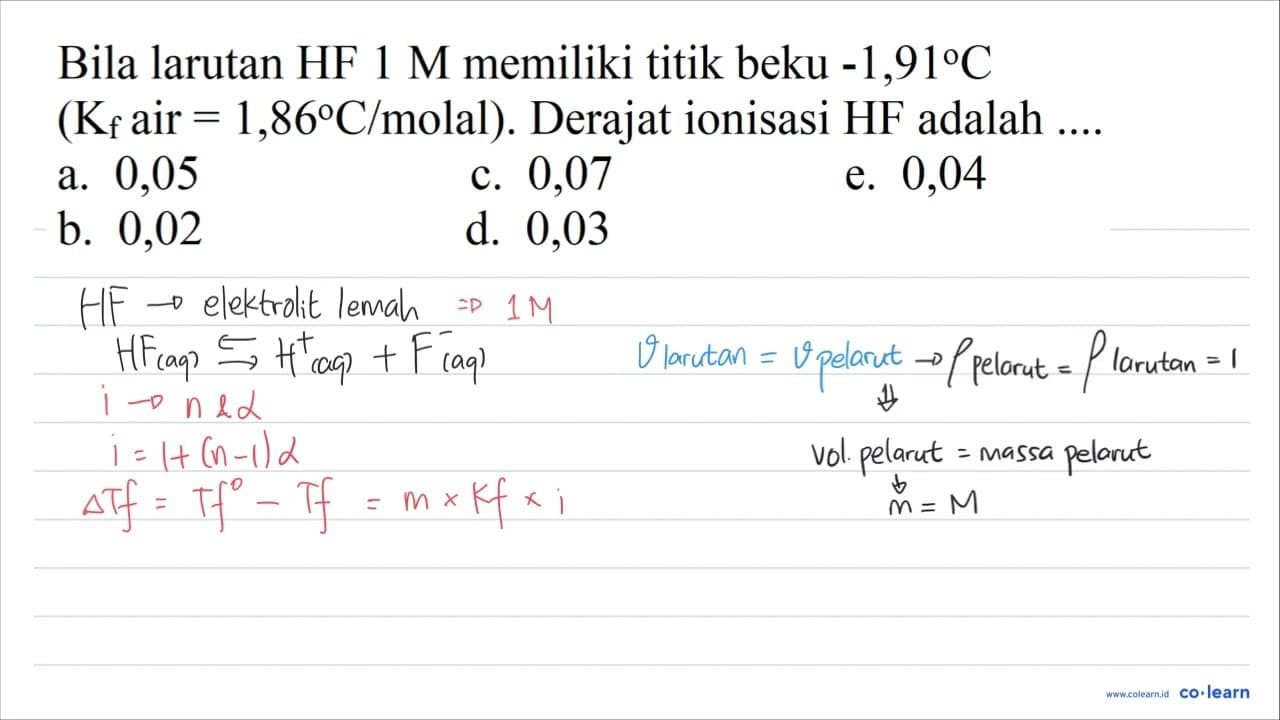 Bila larutan HF 1 M memiliki titik beku -1,91°C
(Kf air = 1,86°C/molal). Derajat ionisasi HF adalah ....
a. 0,05 c. 0,07 e. 0,04
b. 0,02 d. 0,03
HF → elektrolit lemah ⇒ 1 M
HF(aq) ⇆ H⁺(aq) + F⁻(aq) V larutan = V pelarut → ρ pelarut = ρ larutan = 1
i → n & α ⇓
i = 1 + (n-1)α vol. pelarut = massa pelarut
↓
ΔTf = Tf° - Tf = m × Kf × i m = M
www.colearn.id co·learn